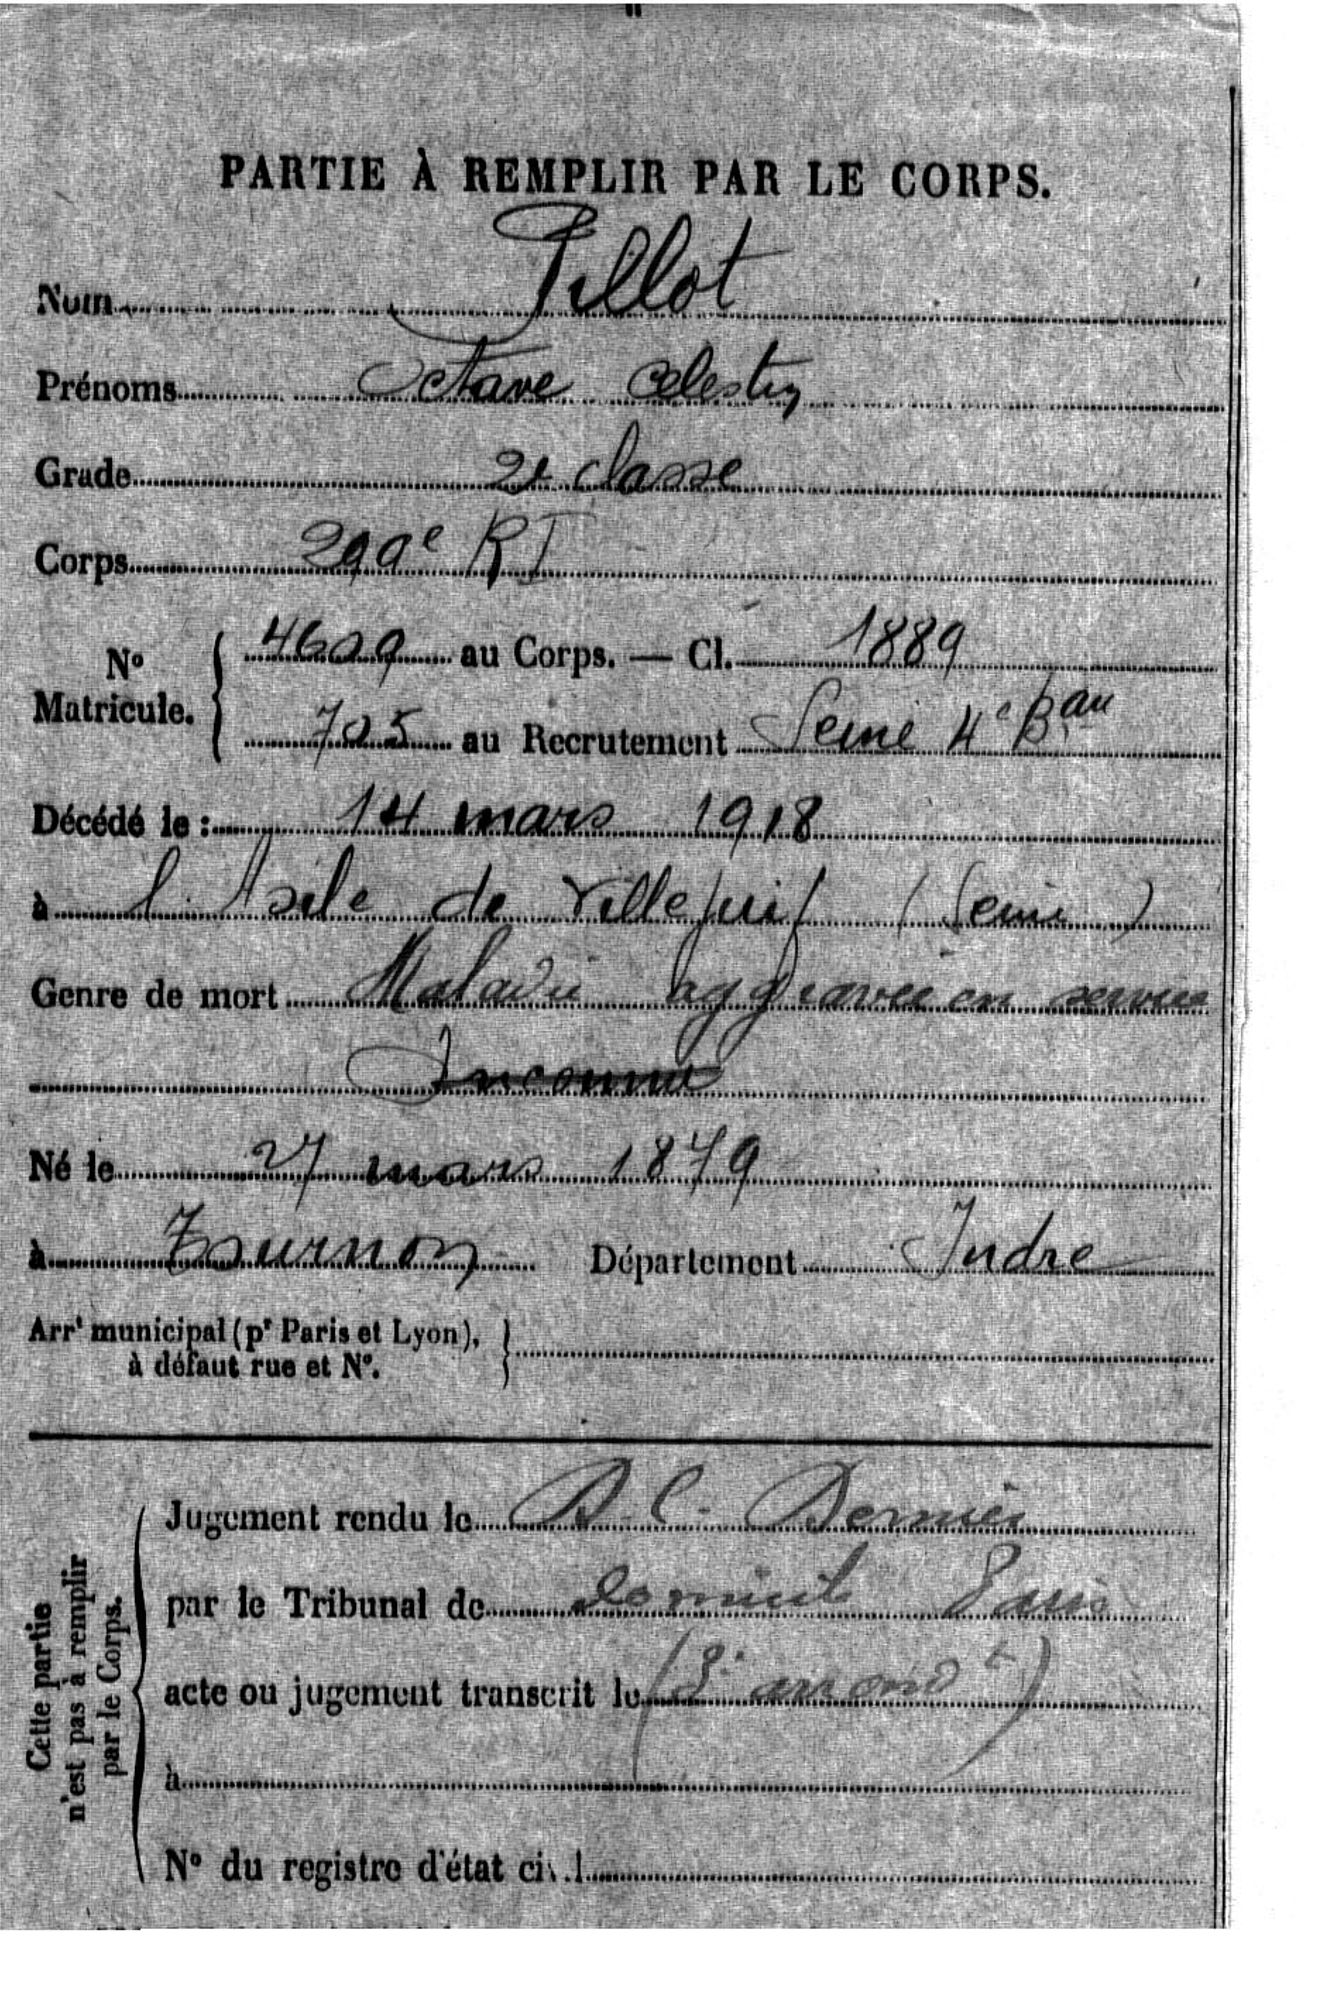 PARTIE À REMPLIR PAR LE CORPS.
Nom Pillot
Prénoms Octave Célestin
Grade 2e classe
Corps 299e RI
N° Matricule. 4609 au Corps. — Cl. 1889
705 au Recrutement Seine 4e Bau
Décédé le : 14 mars 1918
à l'Asile de Villejuif (Seine)
Genre de mort Maladie aggravée en service
Inconnu
Né le 27 mars 1879
à Tournon Département Indre
Arrt municipal (pr Paris et Lyon),
à défaut rue et N°.
Cette partie n'est pas à remplir par le Corps.
Jugement rendu le D.C. Dernier
par le Tribunal de domicile Paris
acte ou jugement transcrit le (3e arrondt)
à
N° du registre d'état civil